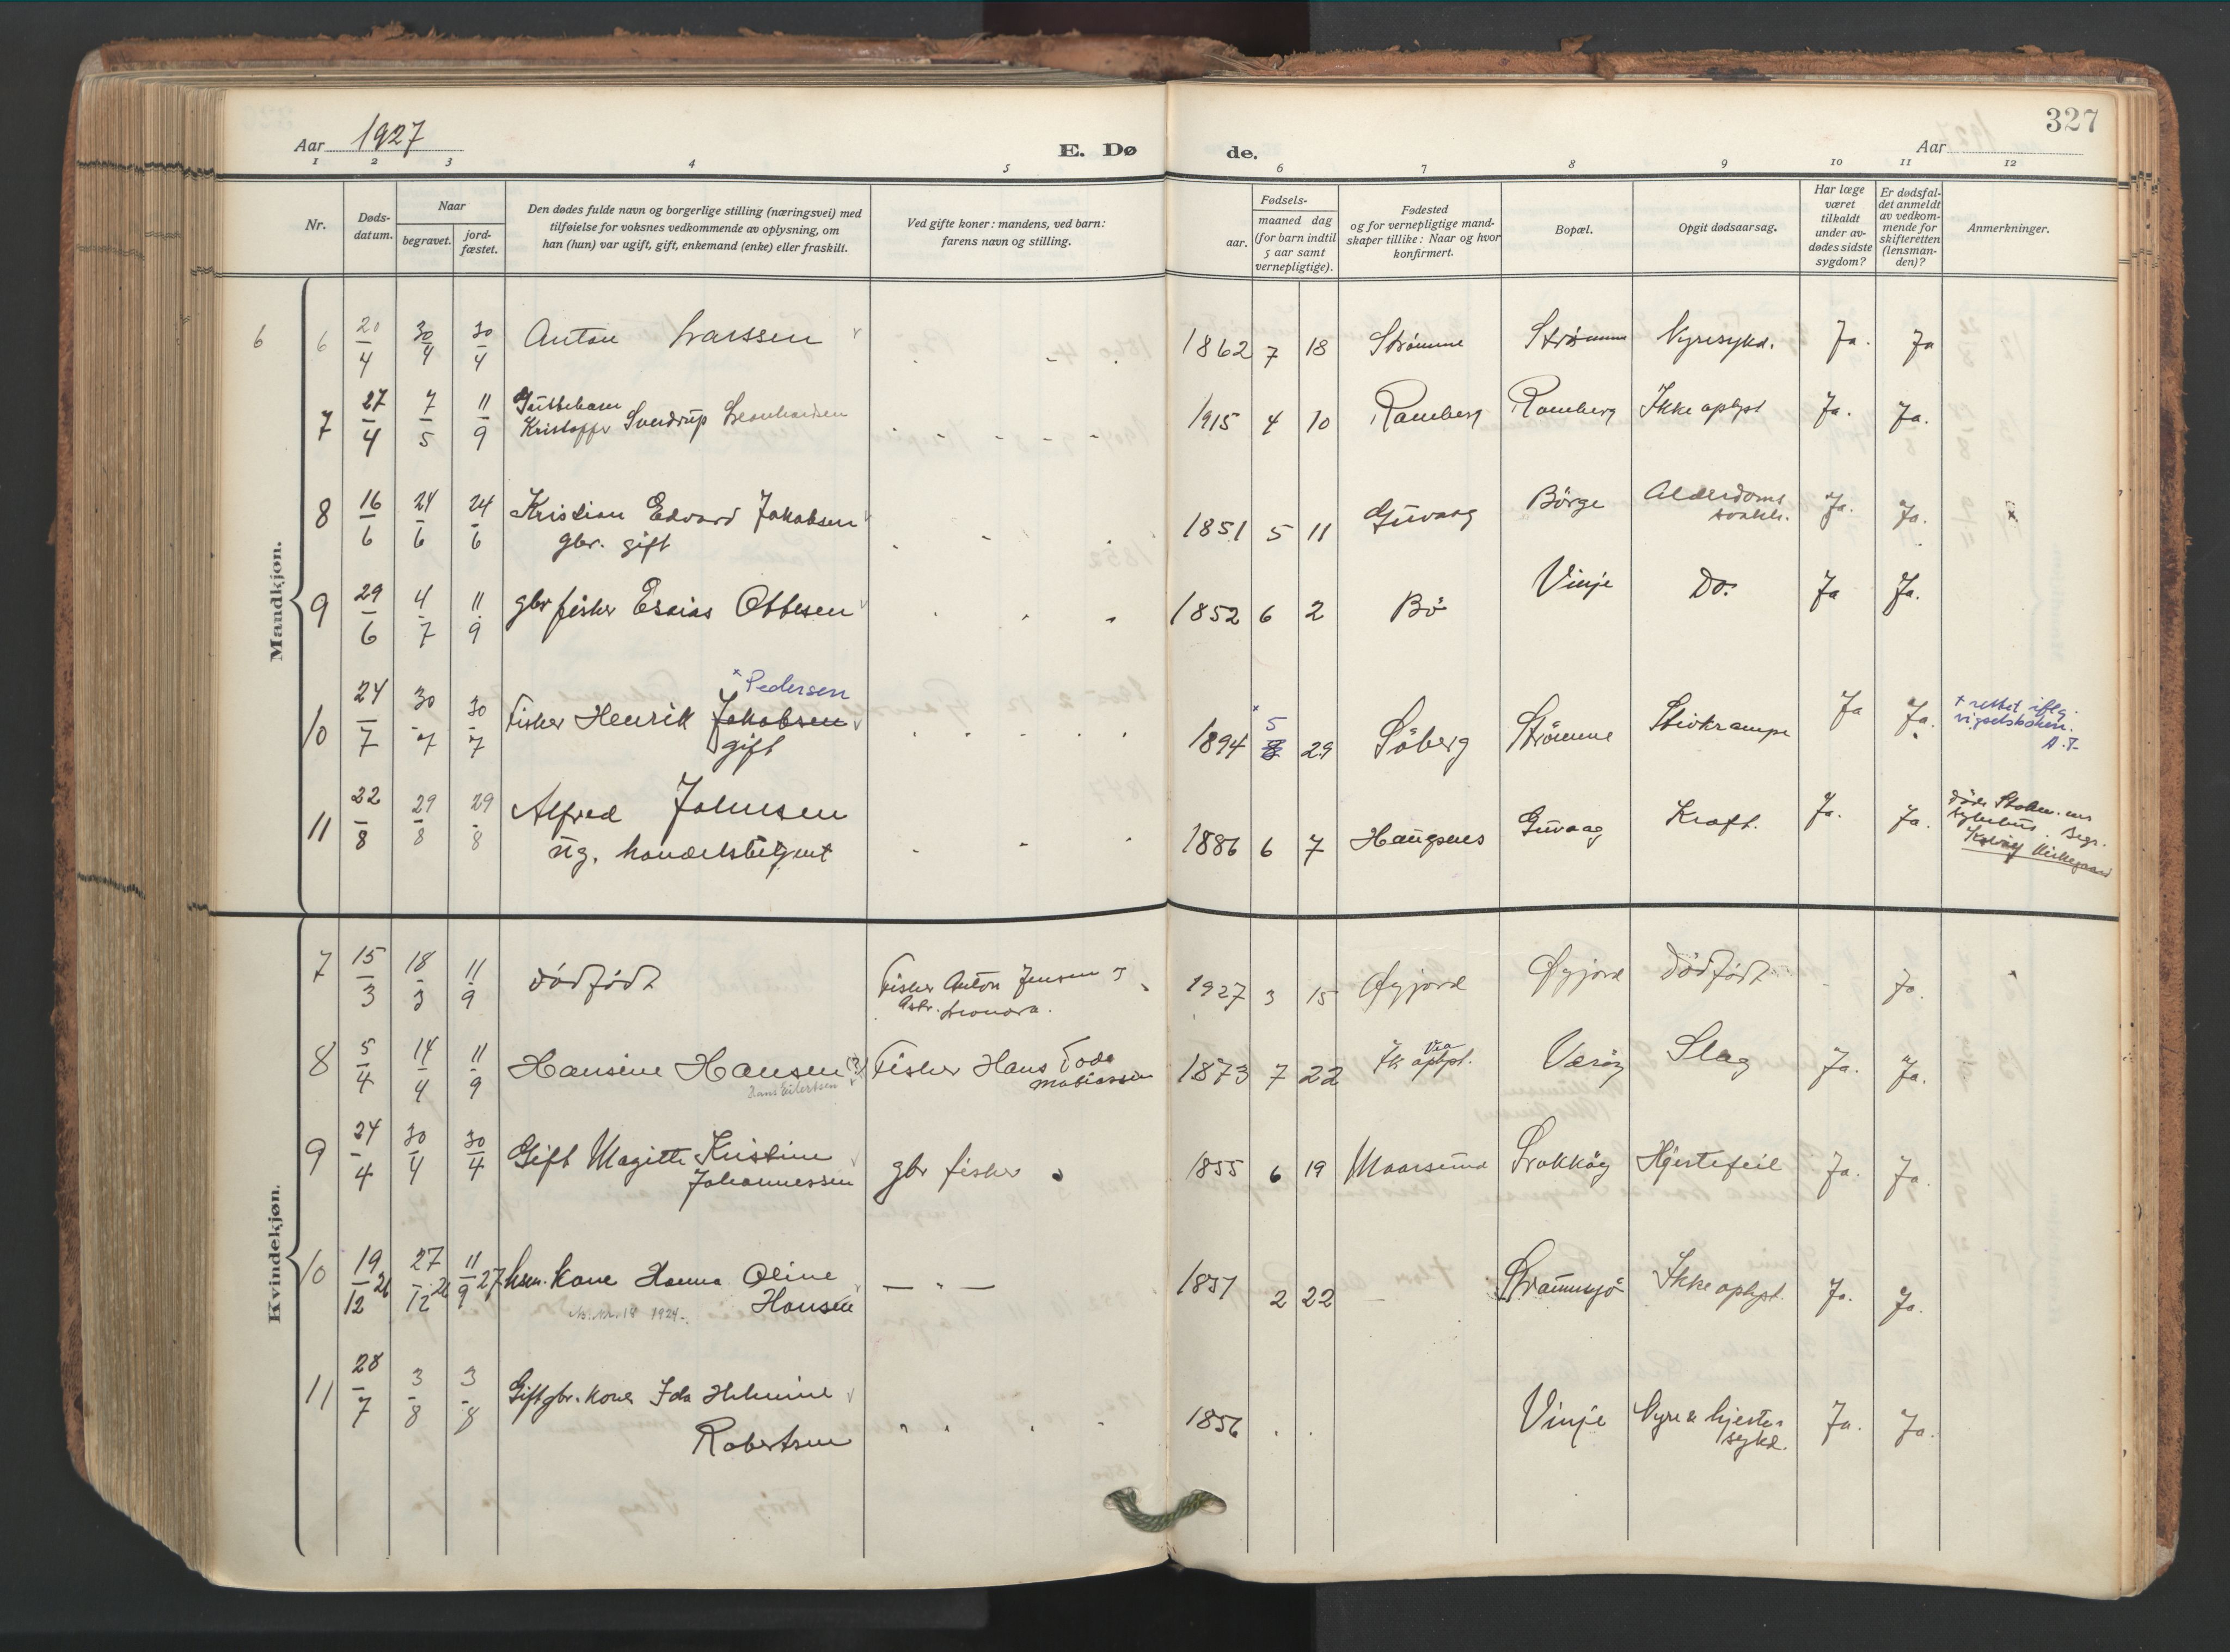 327
Aar 1927
E. Dø de.
Aar
1 2 3 4 5 6 7 8 9 10 11 12
Nr.
Døds-
datum.
Naar
begravet.
jord-
fæstet.
Den dødes fulde navn og borgerlige stilling (næringsvei) med
tilføielse for voksnes vedkommende av oplysning, om
han (hun) var ugift, gift, enkemand (enke) eller fraskilt.
Ved gifte koner: mandens, ved barn:
farens navn og stilling.
Fødsels-
aar.
maaned dag
(for barn indtil
5 aar samt
vernepligtige).
Fødested
og for vernepligtige mand-
skaper tillike: Naar og hvor
konfirmert.
Bopæl.
Opgit dødsaarsag.
Har læge
været
tilkaldt
under av-
dødes sidste
sygdom?
Er dødsfal-
det anmeldt
av vedkom-
mende for
skifteretten
(lensman-
den)?
Anmerkninger.
Mandkjøn.
6 6 20/4 30/4 30/4 Anton Larssen 1862 7 18 Strømme Strømme Nyresykd. Ja. Ja
7 27/4 7/5 11/9 Kristoffer Sverdrup Leonhardsen 1915 4 10 Ramberg Ramberg Ikke oplyst Ja. Ja.
8 16/6 24/6 24/6 Kristian Edvard Jakobsen 1851 5 11 Guvaag Börge Alderdoms Ja. Ja.
gbr. gift
9 29/6 4/7 11/9 gbr fisker Esaias Ottesen 1852 6 2 Bö Vinje Do. Ja Ja.
× Pedersen
10 24/7 30/7 30/7 Fisker Henrik Jakobsen 1894 5 8 29 Söberg Strömme Stivkrampe Ja Ja.
gift
+ rettet iflg.
vigselsboken.
A.J.
11 22/8 29/8 29/8 Alfred Johnsen 1886 6 7 Haugsnes Guvaag Kræft. Ja. Ja.
ug. handelsbetjent
døde Stokm.nes
sykehus. Begr.
kirkegaard
Kvindekjøn.
7 15/3 18/3 11/9 dödfödt Fisker Anton Jensen 1927 3 15 Øyjord Øyjord dödfödt - Ja.
Leonora.
8 5/4 14/4 11/9 Hansine Hansen (?) Fisker Hans Tode 1873 7 22 Ik oplyst. Værøy Slag Ja. Ja.
Hans Eilertsen
Mabiassen
9 24/4 30/4 30/4 Gift Magitte Kristine gbr fisker 1855 6 19 Maarsund Hjertefeil Ja. Ja.
Johannessen
10 19/12 26 27/12 26 11/9 27 hsm. kone Hanna Oline — " — 1851 2 22 — Straumsjö Ikke oplyst Ja. Ja.
Hansen
nr. 18 1924.
11 28/7 3/8 3/8 Gift gbr. kone Ida Helmine 1856 Vinje Nyre & hjerte- Ja. Ja.
Robertsen
sykd.